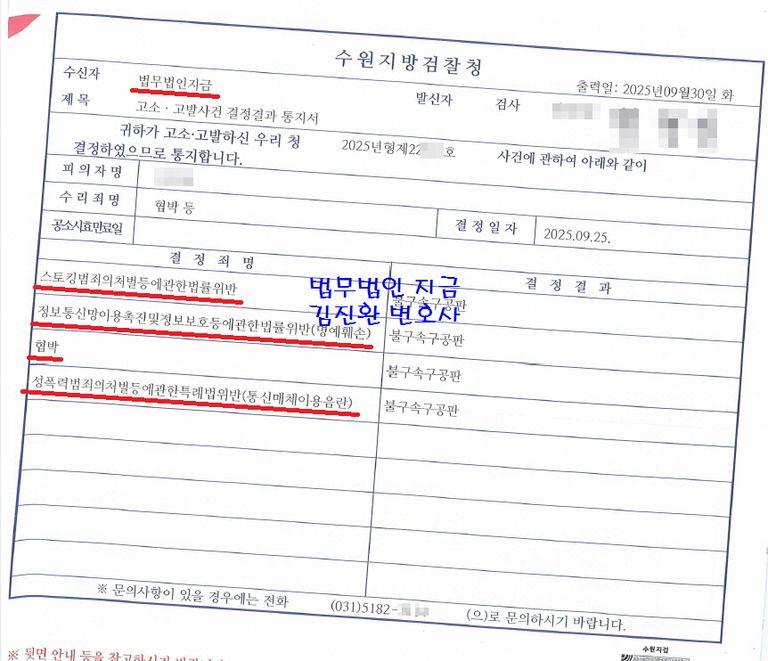 수원지방검찰청
출력일: 2025년09월30일 화
수신자 법무법인지금 발신자 검사
제목 고소·고발사건 결정결과 통지서
귀하가 고소·고발하신 우리 청 2025년형제22 호 사건에 관하여 아래와 같이
결정하였으므로 통지합니다.
피의자명
수리죄명 협박 등 결정일자 2025.09.25.
공소시효만료일
결정죄명 결정결과
스토킹범죄의처벌등에관한법률위반 불구속구공판
법무법인 지금
김진환 변호사
정보통신망이용촉진및정보보호등에관한법률위반(명예훼손) 불구속구공판
협박 불구속구공판
성폭력범죄의처벌등에관한특례법위반(통신매체이용음란) 불구속구공판
※ 문의사항이 있을 경우에는 전화 (031)5182- (으)로 문의하시기 바랍니다.
※ 뒷면 안내 등을 참고하시기
수원지검